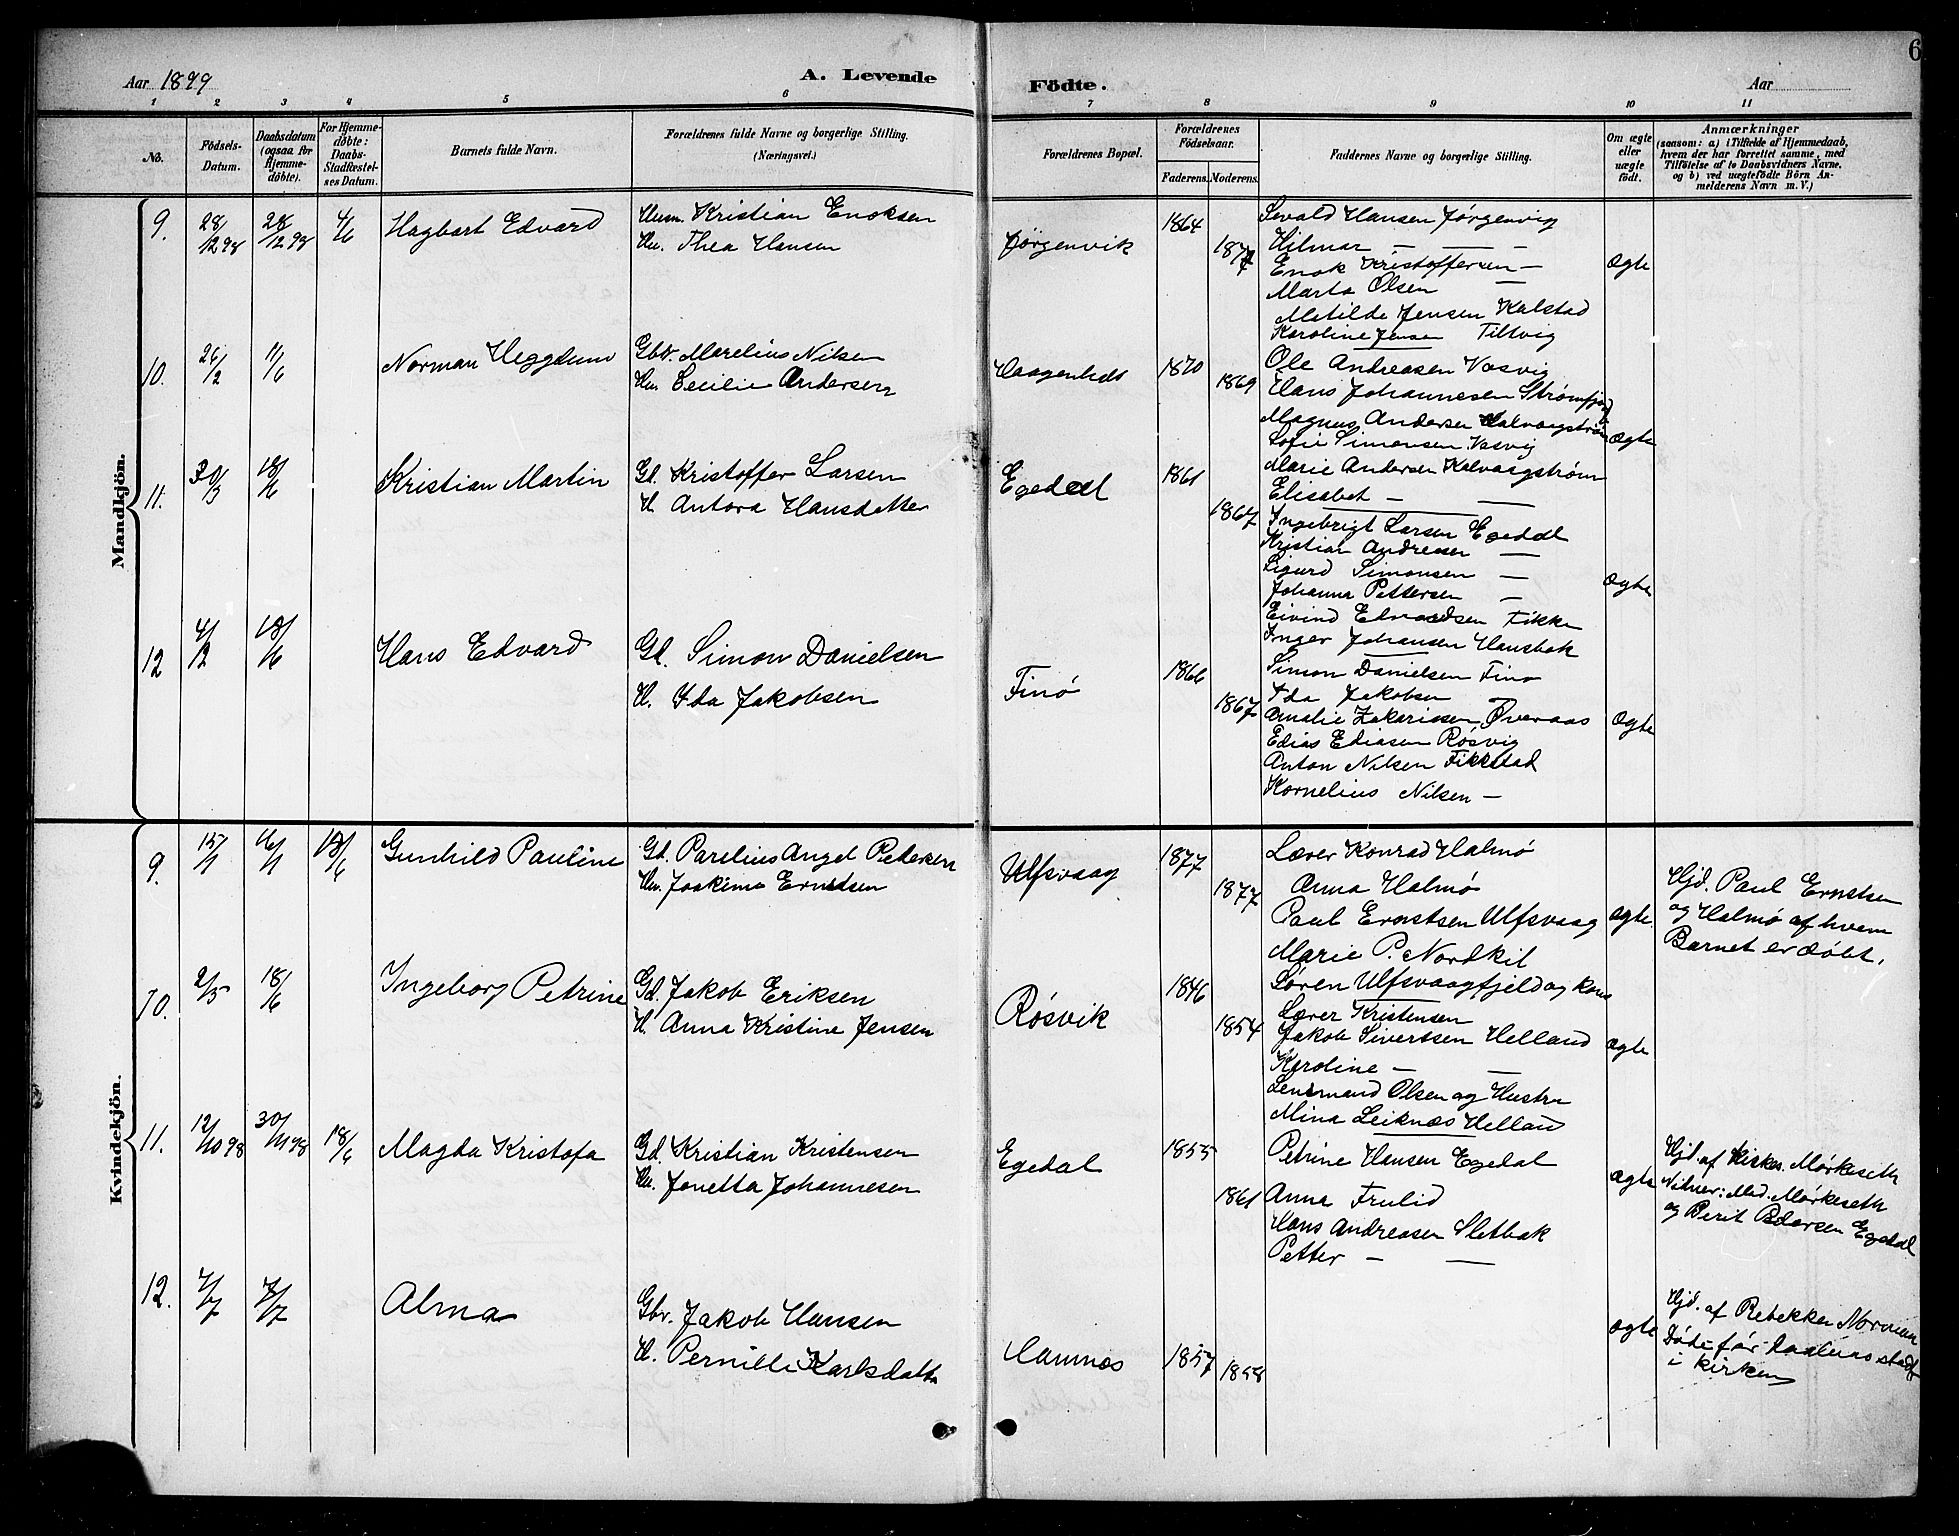 6
Aar 1899
A. Levende
Födte.
Aar
1 2 3 4 5 6 7 8 9 10 11
No.
Födsels-
Datum.
Daabsdatum
(ogsaa for
Hjemme-
döbte).
For Hjemme-
döbte:
Daabs-
Stadfæstel-
ses Datum.
Barnets fulde Navn.
Forældrenes fulde Navne og borgerlige Stilling.
(Næringsvei.)
Forældrenes Bopæl.
Forældrenes
Födselsaar.
Faderens.
Moderens.
Faddernes Navne og borgerlige Stilling.
Om ægte
eller
uægte
födt.
Anmærkninger
(saasom: a) i Tilfælde af Hjemmedaab,
hvem der har forrettet samme, med
Tilföielse af to Daabsvidners Navne,
og b) ved uægtefödte Börn An-
melderens Navn m. V.)
Mandkjön.
9.
28/12 98
28/12 98
4/6
Hagbart Edvard
Husm. Kristian Enoksen
Hu. Thea Hansen
Jørgenvik
1864
1877
Sevald Hansen Jørgenvig
Hilmar — — —
Enok Kristoffersen —
Marta Olsen —
Metilde Jensen Kalstad
Karoline Jensen Tiltvig
Ægte
10.
26/2
11/6
Norman Heggdum
Gbr. Marelius Nilsen
Hu. Cecilie Andersen
1870
1869
Ole Andreasen Vasvig
Hans Johannesen Strømfjord
Magnus Andersen
Sofie Simonsen Vasvig
Marie Andersen Kalvaagstrøm
Elisabet — —
Ægte
11.
30/3
18/6
Kristian Martin
Gd. Kristoffer Larsen
H. Antora Hansdatter
Egedal
1861
1867
Ingebrigt Larsen Egedal
Kristian Andreasen —
Sigurd Simonsen —
Johanna Pettersen —
Eivind Edvardsen Fikke
Inger Johansen Hansbak
Ægte
12
4/2
18/6
Hans Edvard
Gd. Simon Danielsen
H. Ida Jakobsen
Finø
1866
1867
Simon Danielsen Finø
Ida Jakobsen
Amalie Zakariasen Øveraas
Edias Ediasen Røsvig
Anton Nilsen Fikkstad
Kornelius Nilsen —
Ægte
Kvindekjön.
9.
15/1
16/1
18/6
Gunhild Pauline
Gd. Parelius Angel Pedersen
Hu. Joakima Ernstsen
Ulfsvaag
1877
1877
Lærer Konrad Halmø
Anna Halmø
Paul Ernstsen Ulfsvaag
Marie P. Nordkil
Søren Ulfsvaagfjeld og kone
Ægte
Hjd. Paul Ernstsen
og Halmø af hvem
Barnet er døbt.
10.
2/5
18/6
Ingeborg Petrine
Gd. Jakob Eriksen
H. Anna Kristine Jensen
Røsvik
1846
1854
Lærer Kristensen
Jakob Sivertsen Helland
Karoline — —
Lensmand Olsen og Hustru
Mina Leiknæs Helland
Ægte
11.
12/10 98
30/11 98
18/6
Magda Kristofa
Gd. Kristian Kristensen
Hu. Jonetta Johannesen
Egedal
1855
1861
Petrine Hansen Egedal
Anna Frulid
Hans Andreasen Sletbak
Petter — —
Ægte
Hjd. af Kirkes. Mørkeseth
Vidner: Mad. Mørkeseth
og Berit Pedersen Egedal
12.
7/7
Alma
Gbr. Jakob Hansen
H. Pernille Karlsdatter
1857
1858
Ægte
Hjd. af Rebekka Norman
Døde før Daabens stadf
i kirken